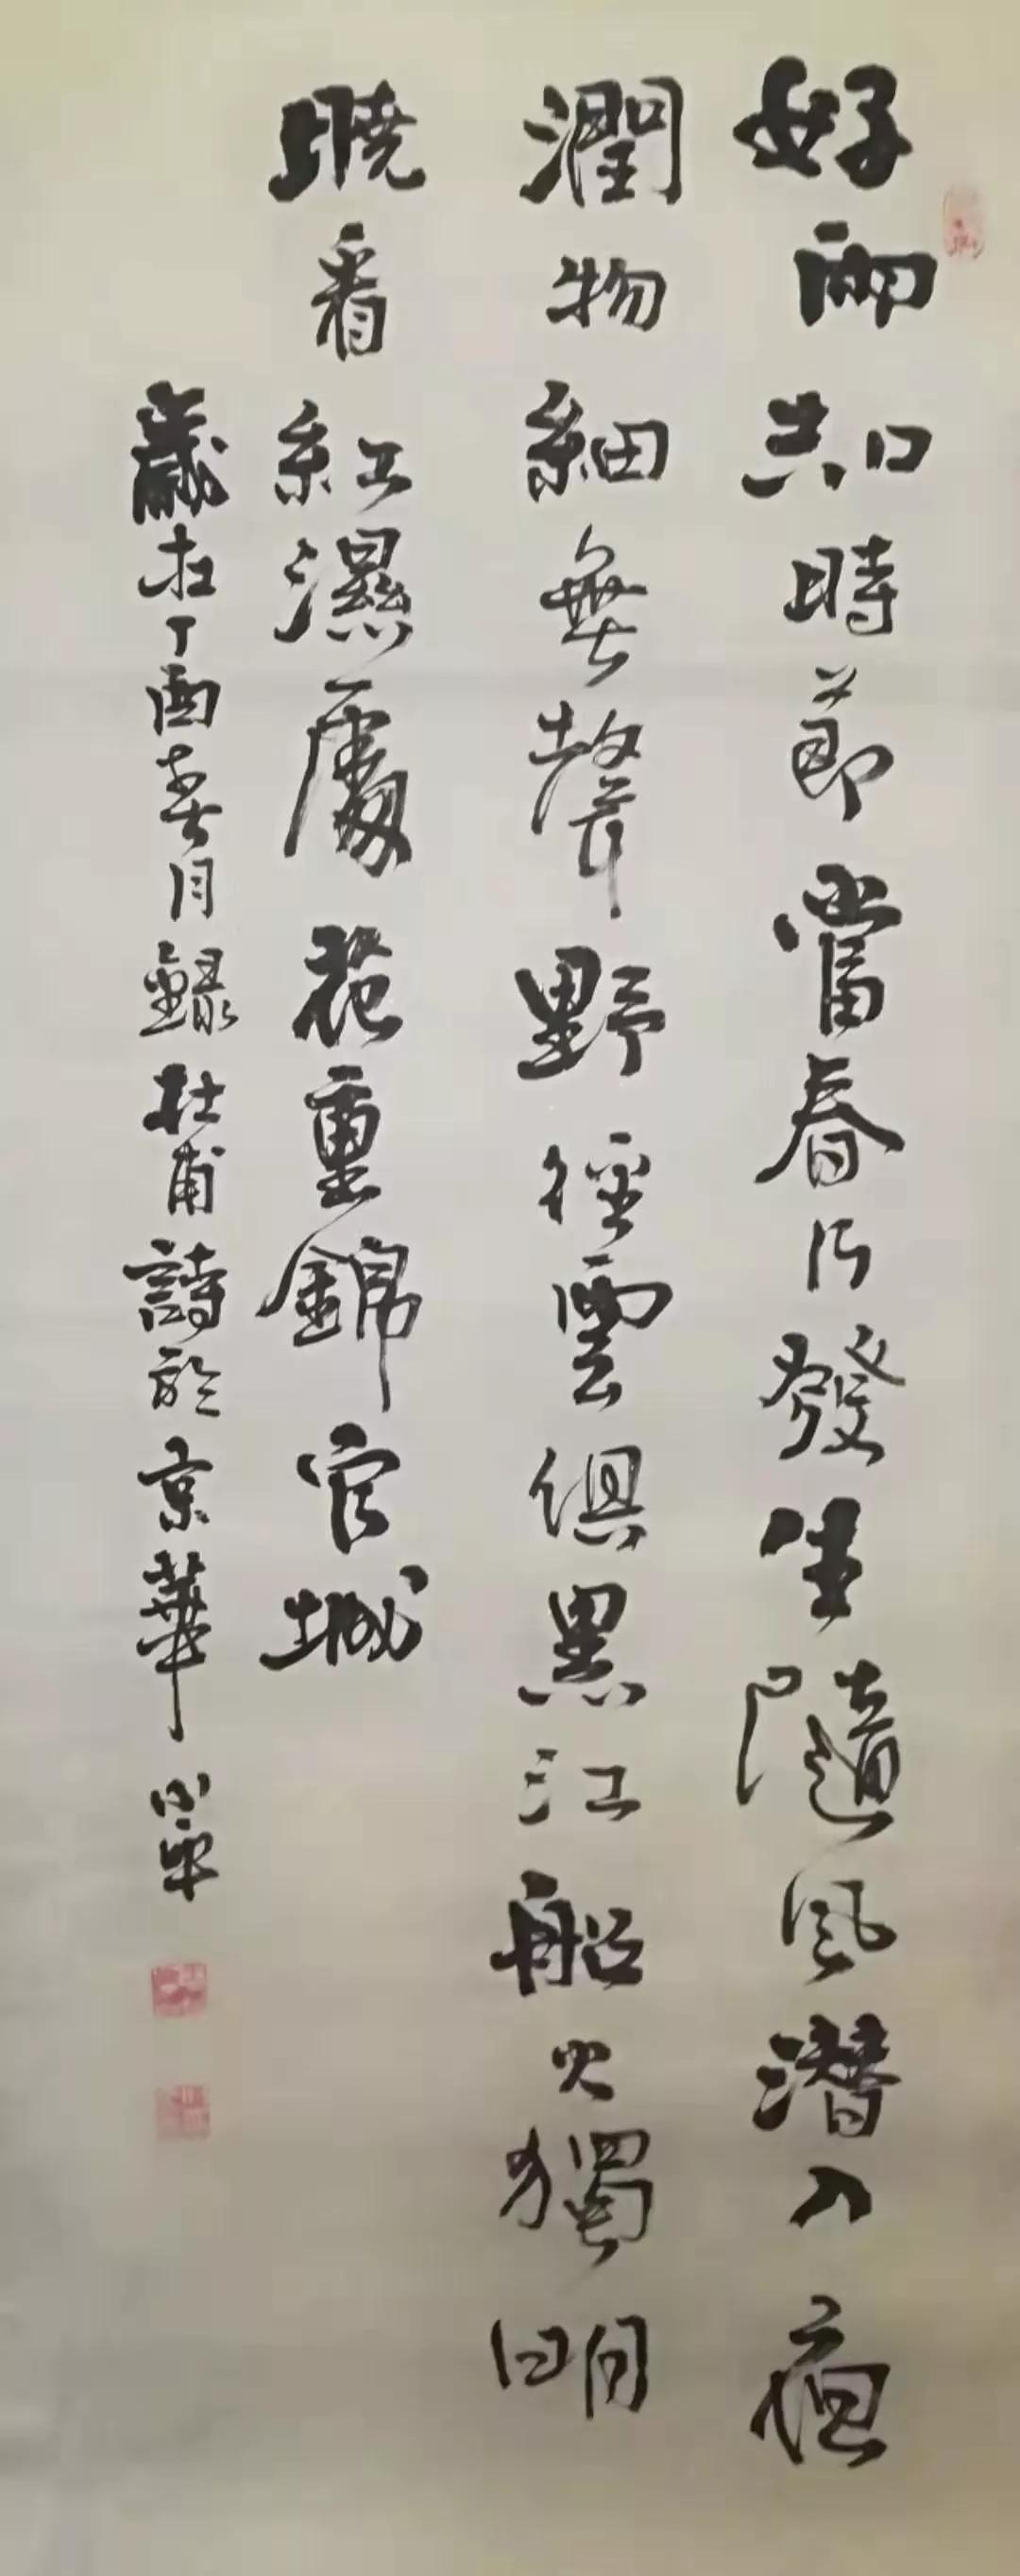 好雨知時節當春乃發生隨風潛入夜
潤物細無聲野徑雲俱黑江船火獨明
曉看紅濕處花重錦官城
歲在丁酉春月錄杜甫詩於京華